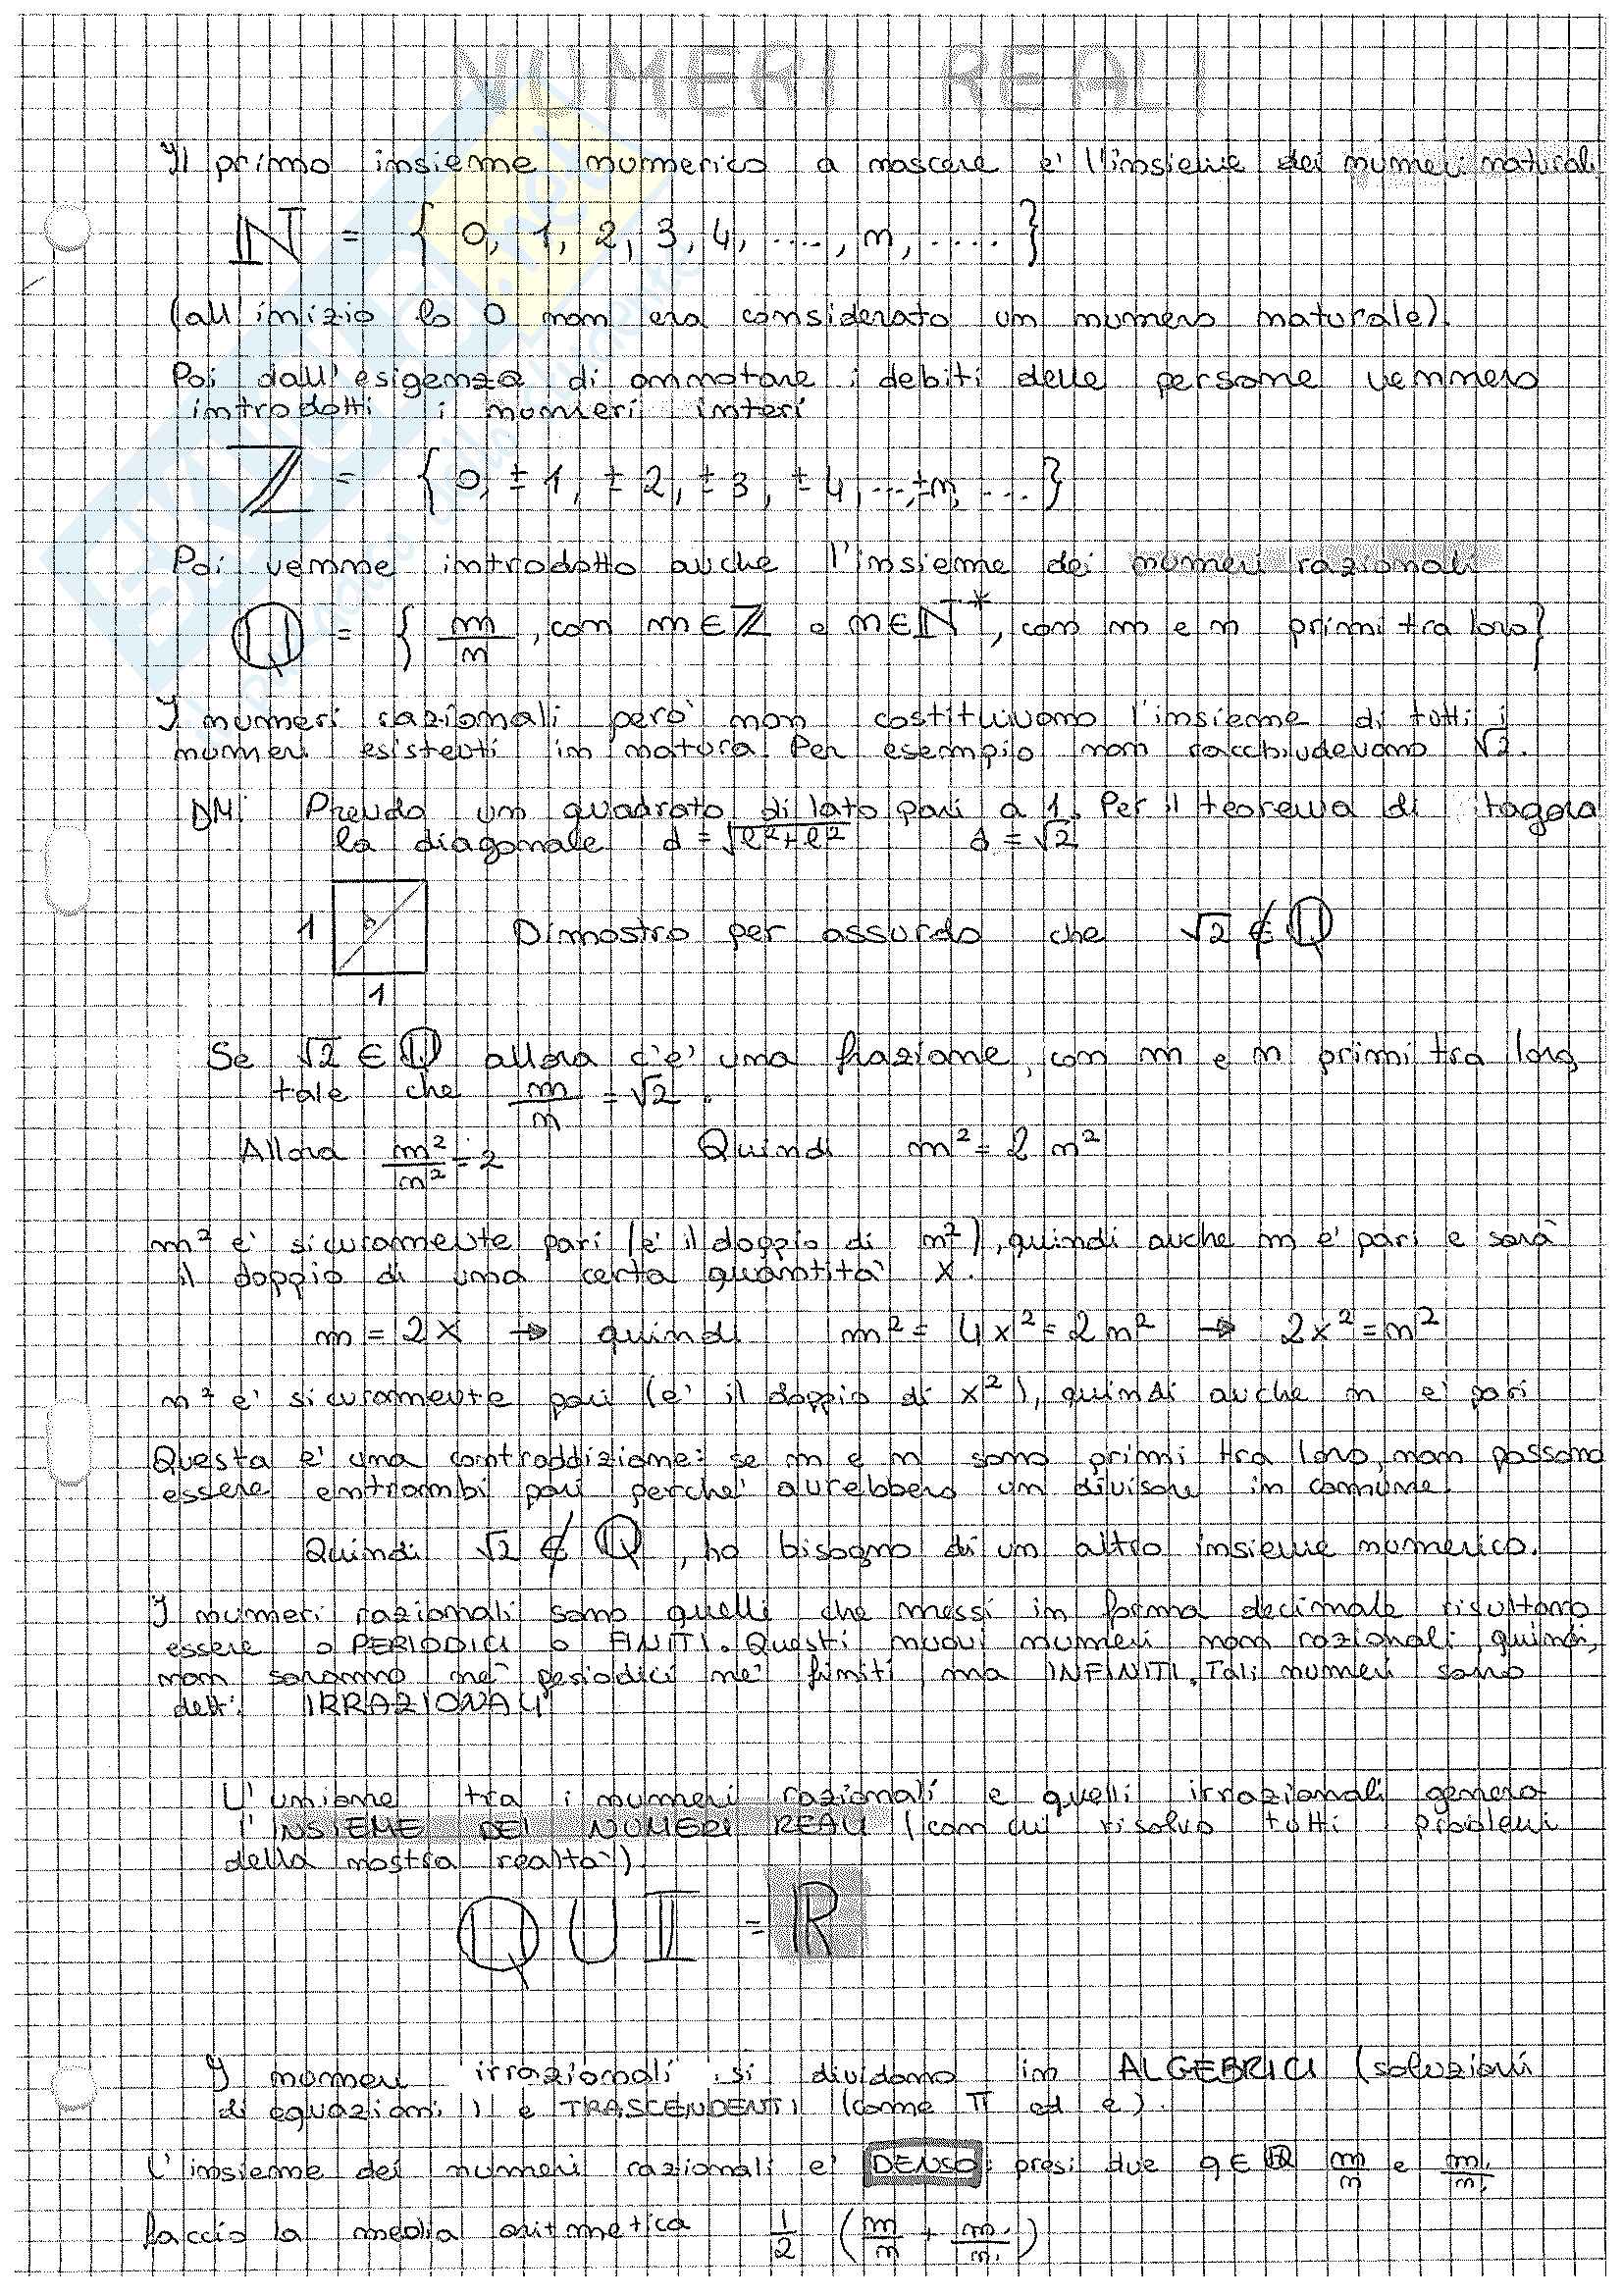 NUMERI REALI
Il primo insieme numerico a nascere e' l'insieme dei numeri naturali
ℕ = { 0, 1, 2, 3, 4, ...., n, ..... }
(all'inizio lo 0 non era considerato un numero naturale).
Poi dall'esigenza di annotare i debiti delle persone vennero
introdotti i numeri interi
ℤ = { 0, ±1, ±2, ±3, ±4, ..., ±n, ... }
Poi venne introdotto anche l'insieme dei numeri razionali
ℚ = { m/n , con m ∈ ℤ e n ∈ ℕ*, con m e n primi tra loro}
I numeri razionali però non costituivano l'insieme di tutti i
numeri esistenti in natura. Per esempio non racchiudevano √2.
DM: Prendo un quadrato di lato pari a 1. Per il teorema di itagora
la diagonale d = √l²+l² d = √2
1 Dimostro per assurdo che √2 ∉ ℚ
1
Se √2 ∈ ℚ allora c'e' una frazione, con m e n primi tra loro
tale che m/n = √2 .
Allora m²/n² = 2 Quindi m² = 2 n²
m² e' sicuramente pari (e' il doppio di n²), quindi anche m e' pari e sarà
il doppio di una certa quantita' x.
m = 2x → quindi m² = 4x² = 2n² → 2x² = n²
n² e' sicuramente pari (e' il doppio di x²), quindi anche n e' pari
Questa e' una contraddizione: se m e n sono primi tra loro, non possono
essere entrambi pari perche' avrebbero un divisore in comune.
Quindi √2 ∉ ℚ, ho bisogno di un altro insieme numerico.
I numeri razionali sono quelli che messi in forma decimale risultano
essere o PERIODICI o FINITI. Questi nuovi numeri non razionali, quindi,
non saranno ne' periodici ne' finiti ma INFINITI. Tali numeri sono
detti IRRAZIONALI
L'unione tra i numeri razionali e quelli irrazionali genera
l'INSIEME DEI NUMERI REALI (con cui risolvo tutti problemi
della nostra realtà).
ℚ ∪ 𝕀 = ℝ
I numeri irrazionali si dividono in ALGEBRICI (soluzioni
di equazioni ) e TRASCENDENTI (come π ed e).
L'insieme dei numeri razionali e' DENSO: presi due q ∈ ℚ m/n e m₁/n₁
faccio la media aritmetica 1/2 (m/n + m₁/n₁)